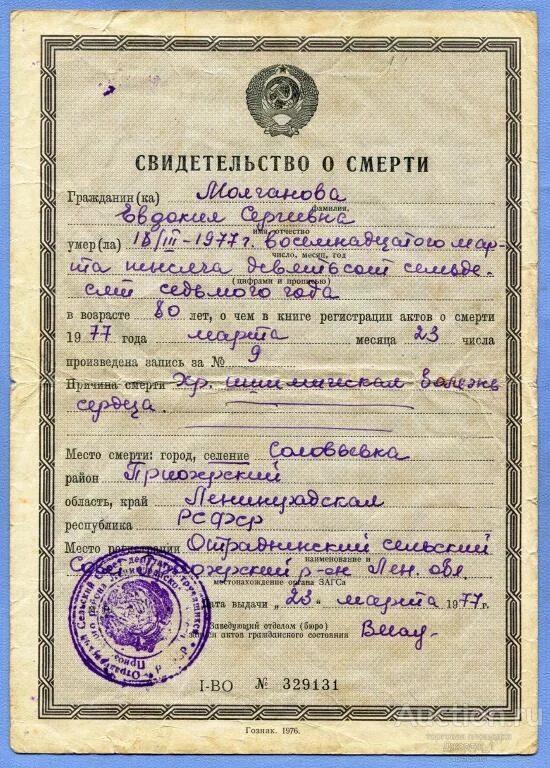 СВИДЕТЕЛЬСТВО О СМЕРТИ
Гражданин(ка) Молганова
фамилия,
Евдокия Сергеевна
имя, отчество
умер(ла) 18/III-1977 г. восемнадцатого мар-
число, месяц, год
та тысяча девятьсот семьде-
(цифрами и прописью)
сят седьмого года
в возрасте 80 лет, о чем в книге регистрации актов о смерти
1977 года марта месяца 23 числа
произведена запись за № 9
Причина смерти Хр. ишимическая болезнь
сердца
Место смерти: город, селение Соловьевка
район Приозерский
область, край Ленинградская
республика РСФСР
Место регистрации Отрадненский сельский
наименование и
Совет Приозерский р-он Лен. обл.
местонахождение органа ЗАГСа
Дата выдачи „23" марта 1977 г.
Заведующий отделом (бюро)
записи актов гражданского состояния
I-ВО № 329131
Гознак. 1976.
Auction.ru